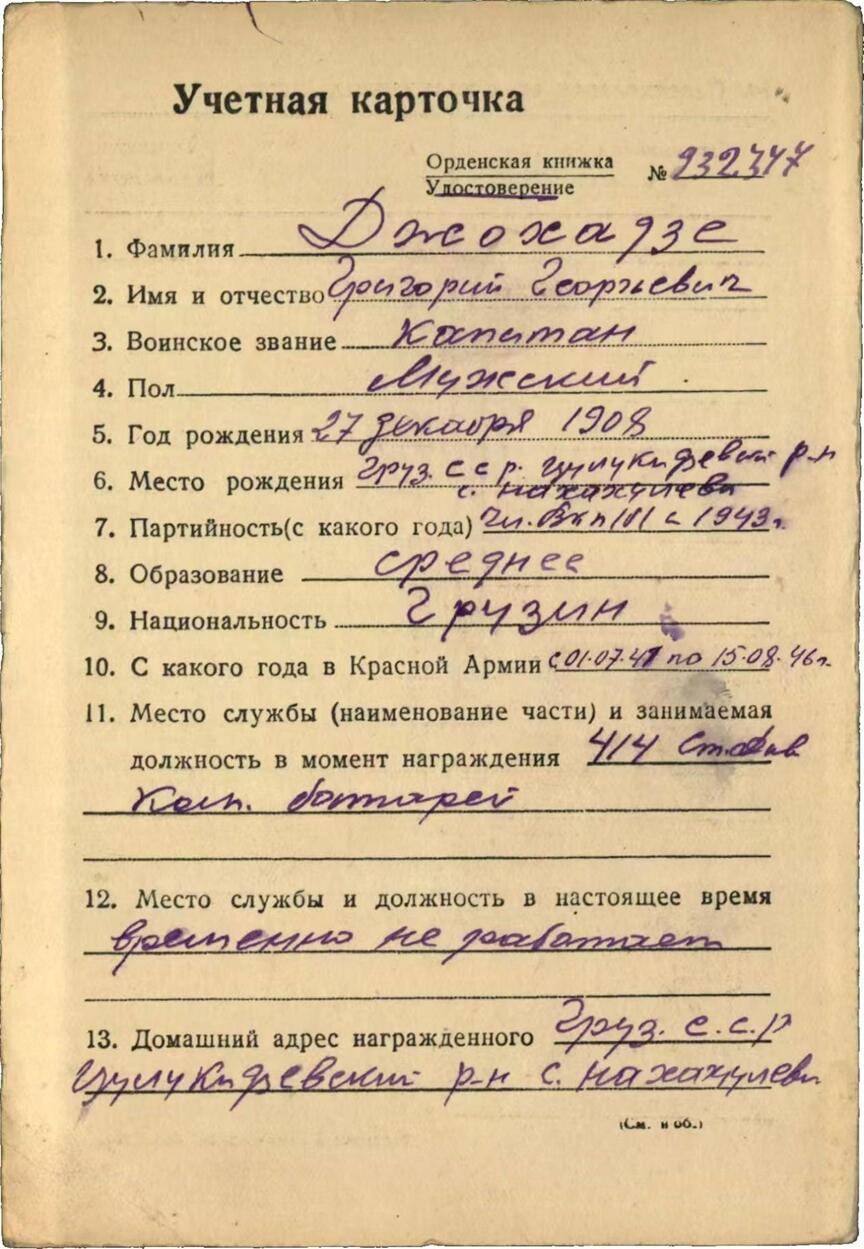 Учетная карточка
Орденская книжка № 932347
Удостоверение
1. Фамилия Джохадзе
2. Имя и отчество Григорий Георгьевич
3. Воинское звание Капитан
4. Пол Мужский
5. Год рождения 27 декабря 1908
6. Место рождения Груз. С С р. Цулукидзевский р-н
с. Нахахулеви
7. Партийность(с какого года) Чл. ВКП(б) с 1943 г.
8. Образование среднее
9. Национальность Грузин
10. С какого года в Красной Армии с 01.07.41 по 15.08.46 г.
11. Место службы (наименование части) и занимаемая
должность в момент награждения 414
Ком. батарей
12. Место службы и должность в настоящее время
временно не работает
13. Домашний адрес награжденного Груз. с.с.р
Цулукидзевский р-н с. Нахахулеви
(См. н об.)